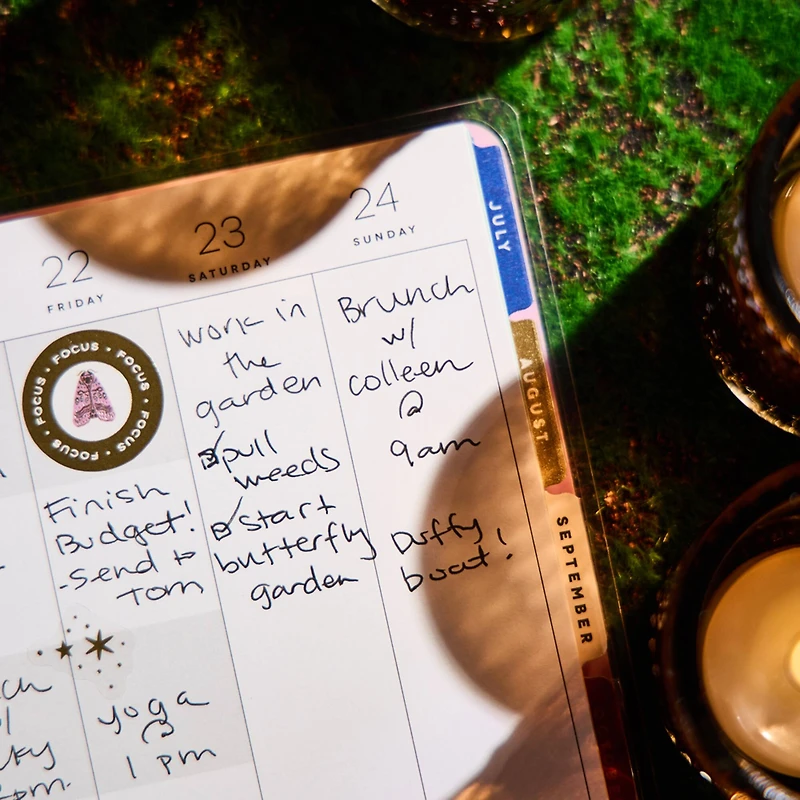 22
FRIDAY
FOCUS • FOCUS • FOCUS • FOCUS • FOCUS • FOCUS •
Finish
Budget!
-Send to
Tom
yoga
@
1 pm
23
SATURDAY
work in
the
garden
pull
weeds
start
butterfly
garden
24
SUNDAY
Brunch
w/
colleen
@
9am
Duffy
boat!
JULY
AUGUST
SEPTEMBER